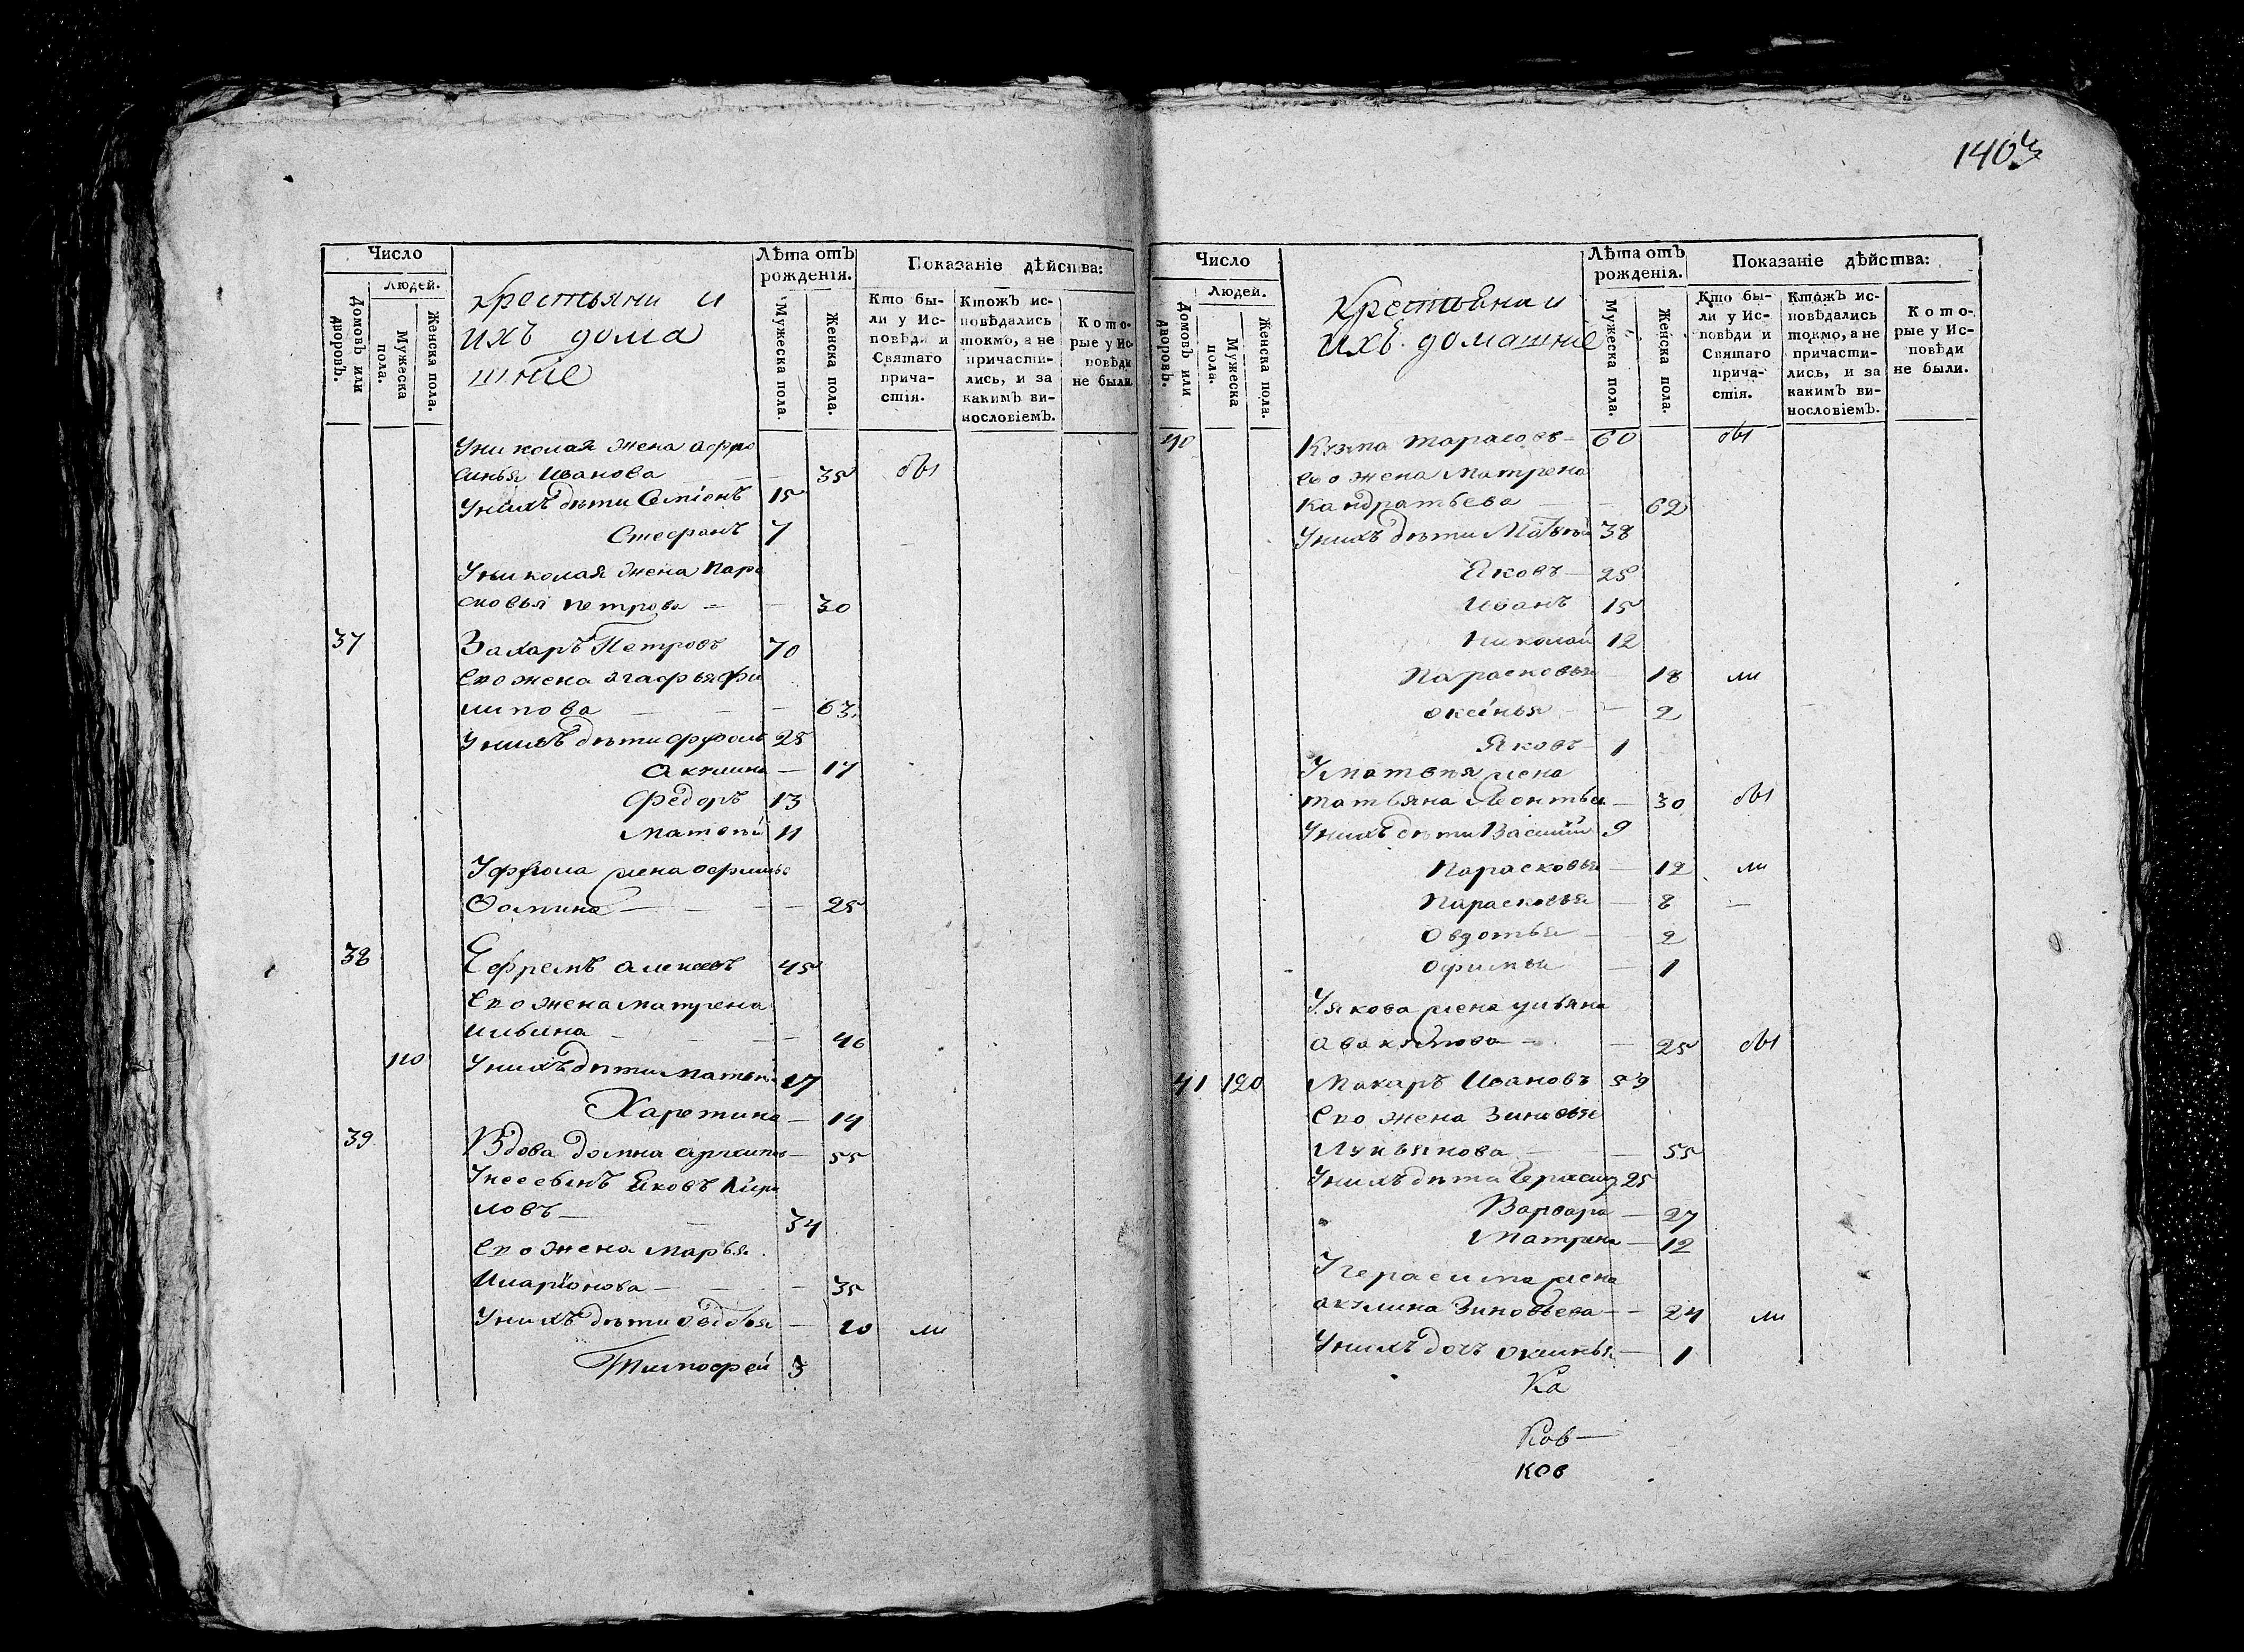 1403
Число
Людей.
Домовъ или дворовъ.
Мужеска пола.
Женска пола.
крестьяни и
ихъ дома
шніе
Лѣта отъ рожденія.
Мужеска пола.
Женска пола.
Показаніе дѣйства:
Кто бы-
ли у Ис-
повѣди и
Святаго
прича-
стія.
Ктожъ ис-
повѣдались
токмо, а не
причасти-
лись, и за
какимъ ви-
нословіемъ.
Кото-
рые у Ис-
повѣди
не были.
Униколая жена афро
синья Иванова 35 бы
Унихъ дѣти Семіенъ 15
Стефанъ 7
Униколая жена пара
сковья петрова 30
37 Захаръ Петровъ 70
Ево жена агафья фи
липова 63
Унихъ дѣти 25
акулина 17
Федоръ 13
Матвѣй 11
жена
Фомина 25
38 Ефремъ алексеевъ 45
Ево жена матрена
ильина 46
110 Унихъ дѣти матвѣй 17
Харетина 14
39 Вдова домна 55
Унеесынъ Яковъ Кири
ловъ 34
Ево жена марья
Иларіонова 35
Унихъ дѣти Овдотья 10 ли
Тимофей 3
Число
Людей.
Домовъ или дворовъ.
Мужеска пола.
Женска пола.
крестьяни и
ихъ домашніе
Лѣта отъ рожденія.
Мужеска пола.
Женска пола.
Показаніе дѣйства:
Кто бы-
ли у Ис-
повѣди и
Святаго
прича-
стія.
Ктожъ ис-
повѣдались
токмо, а не
причасти-
лись, и за
какимъ ви-
нословіемъ.
Кото-
рые у Ис-
повѣди
не были.
40 Кузма тарасовъ 60 бы
ево жена матрена
Кандратьева 62
Унихъ дѣти Матвѣй 38
Яковъ 25
Иванъ 15
николай 12
Парасковья 18 ли
оксінья 2
Яковъ 1
Уматвѣя жена
татьяна Леонтьева 30 бы
Унихъ дѣти Василій 9
Парасковья 12 ли
Парасковья 8
Овдотья 2
Офимья 1
Уякова жена ульяна
авакумова 25 бы
41 120 Макаръ Ивановъ 59
Ево жена Зиновья
Лукьянова 55
Унихъ дѣти Герасим 25
Варвара 27
Матрена 12
Угерасима жена
акулина Зиновьева 24 ли
Унихъ дочь оксинья 1
Ка
Ков
ков